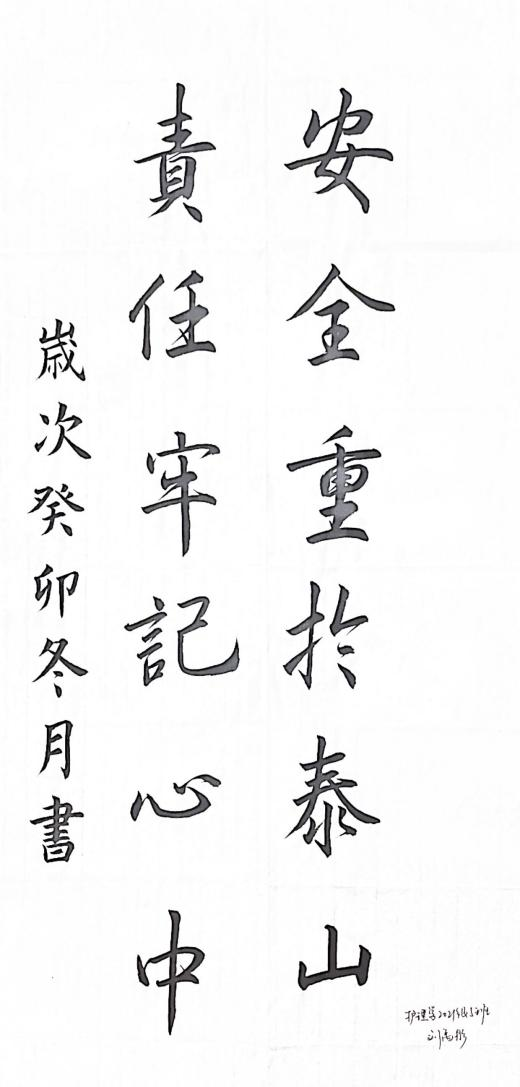 安全重扵泰山
責任牢記心中
歳次癸卯冬月書
护理学2021级5班